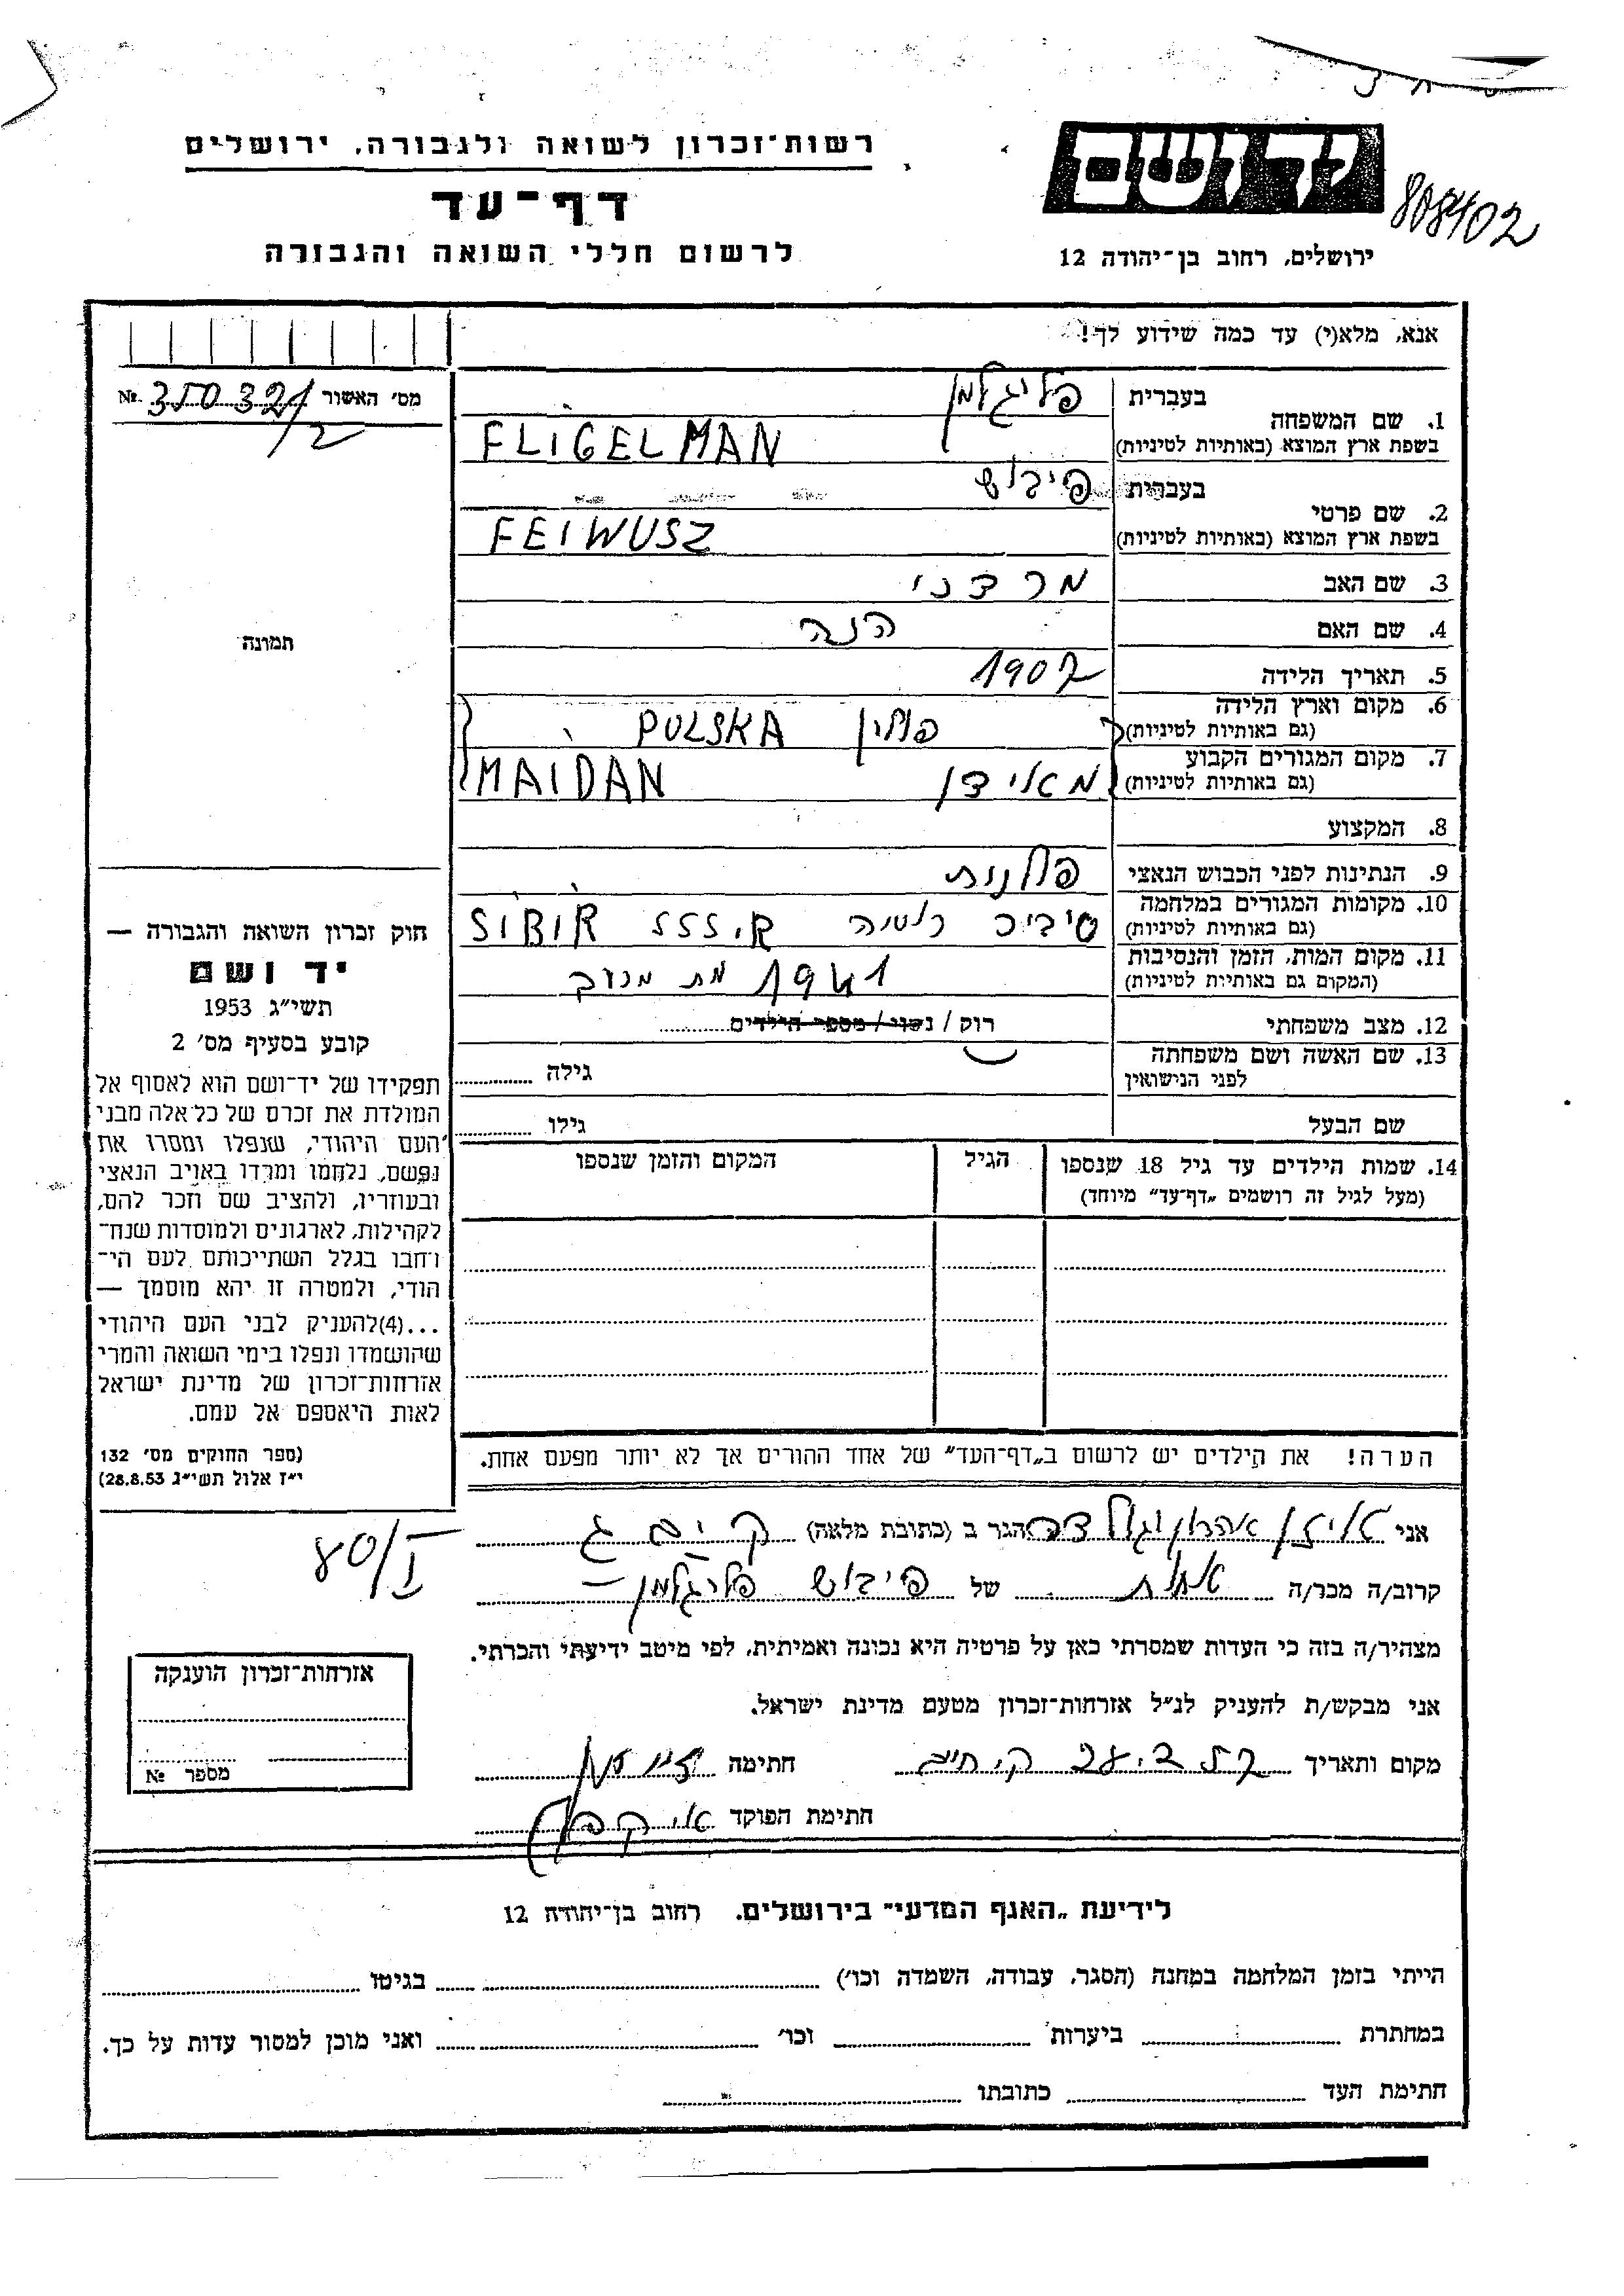 רשות־זכרון לשואה ולגבורה, ירושלים
דף־עד
לרשום חללי השואה והגבורה
ידושם
808402
ירושלים, רחוב בן־יהודה 12
אנא, מלא(י) עד כמה שידוע לך!
מס׳ האשור 350321 №
/2
תמונה
1. שם המשפחה
בעברית פליגלמן
בשפת ארץ המוצא (באותיות לטיניות) FLIGELMAN
2. שם פרטי
בעברית פיבוש
בשפת ארץ המוצא (באותיות לטיניות) FEIWUSZ
3. שם האב מרדכי
4. שם האם חנה
5. תאריך הלידה 1907
6. מקום וארץ הלידה
(גם באותיות לטיניות) פולין PULSKA
7. מקום המגורים הקבוע
(גם באותיות לטיניות) מאידן MAIDAN
8. המקצוע
9. הנתינות לפני הכבוש הנאצי פולנית
10. מקומות המגורים במלחמה
(גם באותיות לטיניות) סיביר רוסיה SIBIR SSS.R.
11. מקום המות, הזמן והנסיבות
(המקום גם באותיות לטיניות) 1941 מת מרעב
12. מצב משפחתי רוק / נשוי / מספר הילדים
13. שם האשה ושם משפחתה
לפני הנישואין גילה
שם הבעל גילו
14. שמות הילדים עד גיל 18 שנספו
(מעל לגיל זה רושמים „דף־עד״ מיוחד)
הגיל
המקום והזמן שנספו
חוק זכרון השואה והגבורה —
יד ושם
תשי״ג 1953
קובע בסעיף מס׳ 2
תפקידו של יד־ושם הוא לאסוף אל
המולדת את זכרם של כל אלה מבני
העם היהודי, שנפלו ומסרו את
נפשם, נלחמו ומרדו באויב הנאצי
ובעוזריו, ולהציב שם וזכר להם,
לקהילות, לארגונים ולמוסדות שנח־
רבו בגלל השתייכותם לעם הי־
הודי, ולמטרה זו יהא מוסמך —
...(4) להעניק לבני העם היהודי
שהושמדו ונפלו בימי השואה והמרי
אזרחות־זכרון של מדינת ישראל
לאות היאספם אל עמם.
(ספר החוקים מס׳ 132
י״ז אלול תשי״ג 28.8.53)
הערה! את הילדים יש לרשום ב„דף־העד״ של אחד ההורים אך לא יותר מפעם אחת.
80/I
אני הגר ב (כתובת מלאה)
קרוב/ה מכר/ה אחות של פיבוש פליגלמן
מצהיר/ה בזה כי העדות שמסרתי כאן על פרטיה היא נכונה ואמיתית, לפי מיטב ידיעתי והכרתי.
אני מבקש/ת להעניק לנ״ל אזרחות־זכרון מטעם מדינת ישראל.
מקום ותאריך חתימה
חתימת הפוקד
אזרחות־זכרון הוענקה
מספר №
לידיעת „האגף המדעי״ בירושלים, רחוב בן־יהודה 12
הייתי בזמן המלחמה במחנה (הסגר, עבודה, השמדה וכו׳) בגיטו
במחתרת ביערות וכו׳ ואני מוכן למסור עדות על כך.
חתימת העד כתובתו